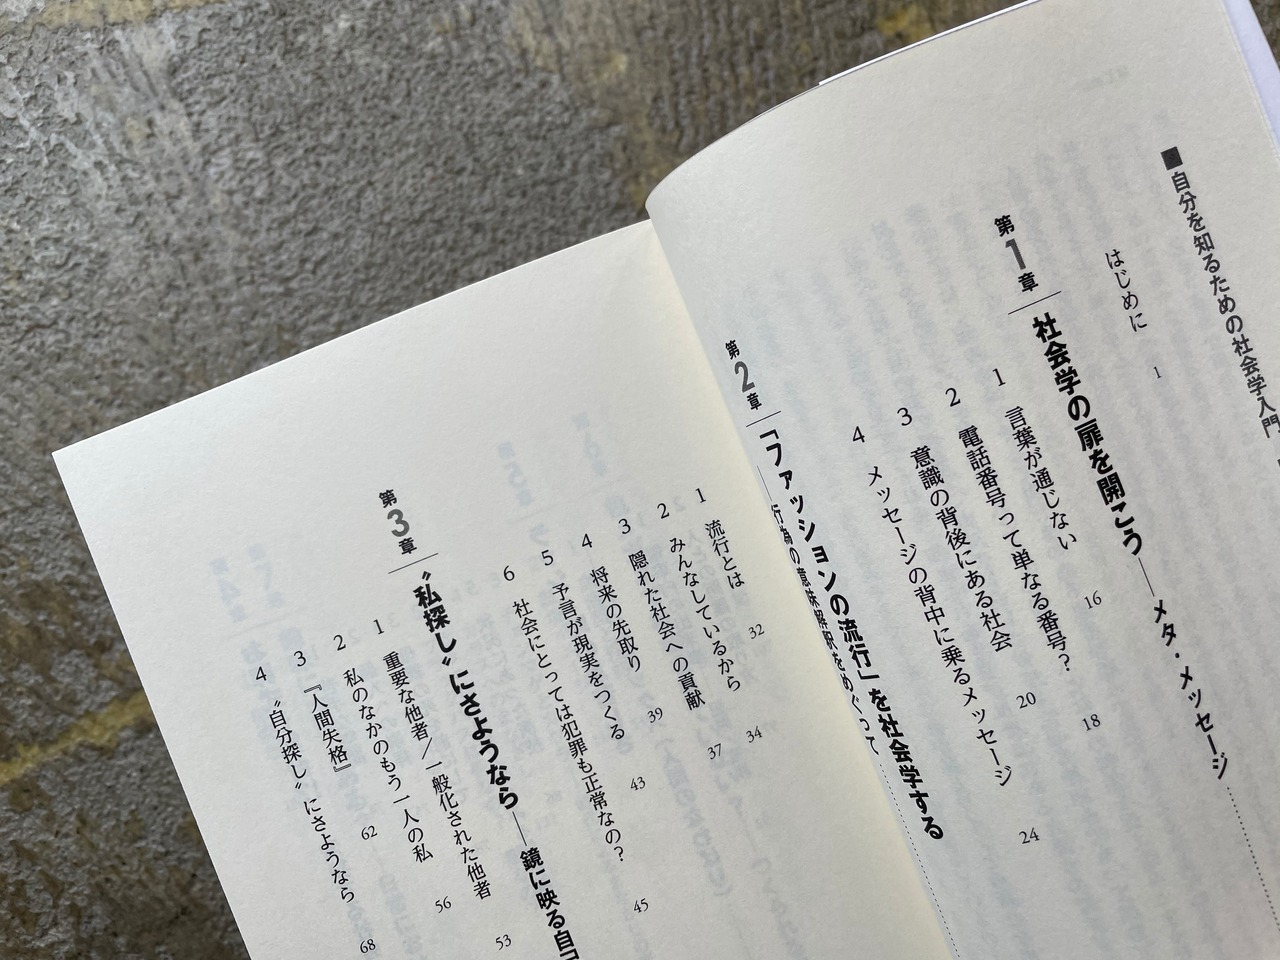 ■自分を知るための社会学入門
はじめに 1
第1章 社会学の扉を開こう――メタ・メッセージ
1 言葉が通じない 16
2 電話番号って単なる番号? 18
3 意識の背後にある社会 20
4 メッセージの背中に乗るメッセージ 24
第2章 「ファッションの流行」を社会学する
――行為の意味解釈をめぐって
1 流行とは 32
2 みんなしているから 34
3 隠れた社会への貢献 37
4 将来の先取り 39
5 予言が現実をつくる 43
6 社会にとっては犯罪も正常なの? 45
第3章 〝私探し〟にさようなら――鏡に映る自
1 重要な他者/一般化された他者 53
2 私のなかのもう一人の私 56
3 『人間失格』 62
4 〝自分探し〟にさようなら 68